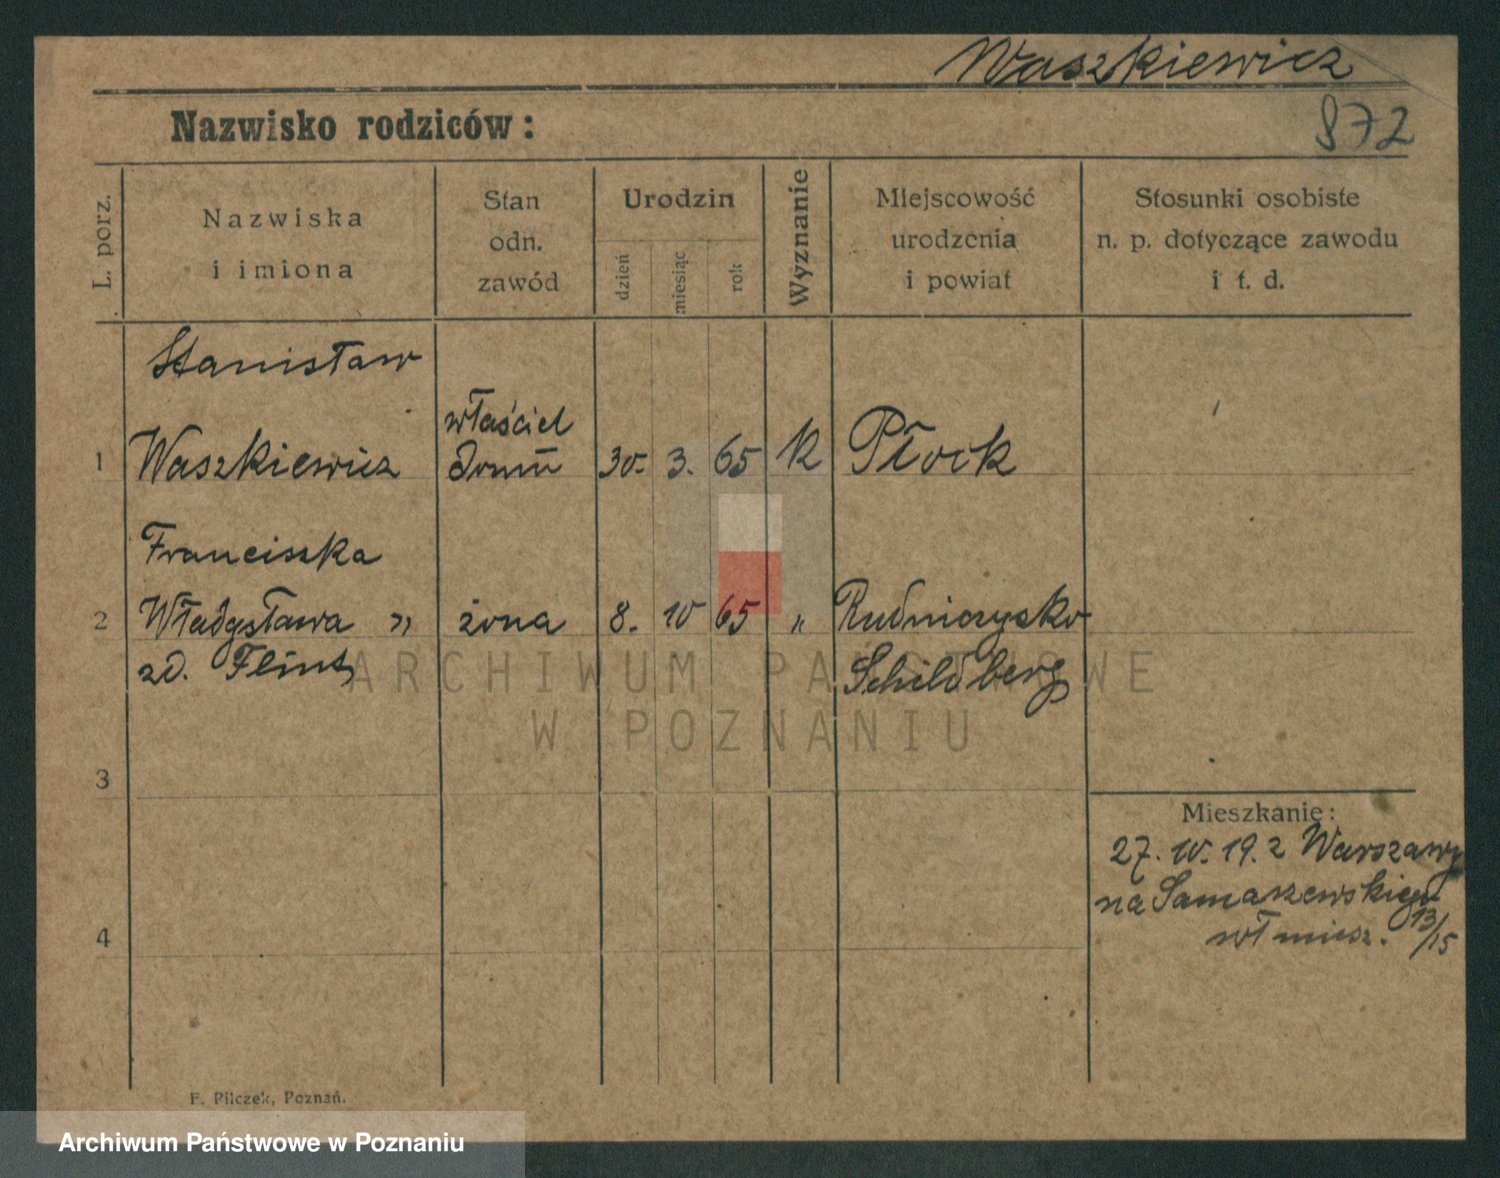 Waszkiewicz
872
Nazwisko rodziców:
L. porz.
Nazwiska
i imiona
Stan
odn.
zawód
Urodzin
dzień
miesiąc
rok
Wyznanie
Miejscowość
urodzenia
i powiat
Stosunki osobiste
n. p. dotyczące zawodu
i t. d.
Stanisław
1 Waszkiewicz
właściel
domu
30. 3. 65 K Płock
Franciszka
2 Władysława " żona 8. 10 65 "
zd. Flint
Schildberg
ARCHIWUM PAŃSTWOWE
W POZNANIU
3
4
Mieszkanie:
27. 10. 19. z Warszawy
na
wł miesz. 13/15
F. Pilczek, Poznań.
Archiwum Państwowe w Poznaniu